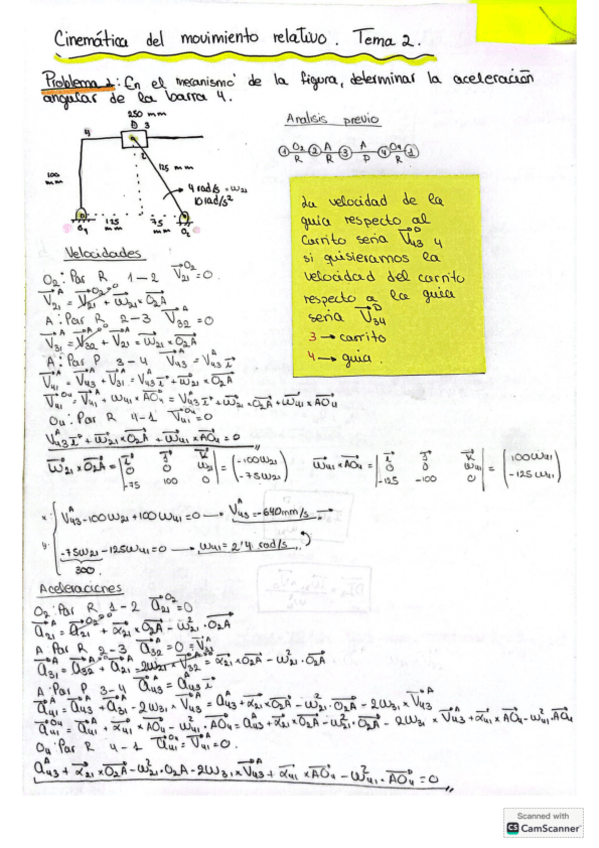 Cinemática del movimiento relativo. Tema 2.
Problema 1: En el mecanismo de la figura, determinar la aceleración
angular de la barra 4.
250 mm
D 3
4
100 mm
125 mm
4 rad/s = ω21
10 rad/s²
O4
125 mm
75 mm
O2
Analisis previo
1 O2 R 2 A R 3 A P 4 O4 R 1
La velocidad de la
guia respecto al
carrito seria V43^D y
si quisieramos la
velocidad del carrito
respecto a la guia
seria V34^D
3 → carrito
4 → guia.
Velocidades
O2: Par R 1-2 V21^O2 = 0
V21^A = V21^O2 + ω21 × O2A
A: Par R 2-3 V32^A = 0
V31^A = V32^A + V21^A = ω21 × O2A
A: Par P 3-4 V43^A = V43^A i
V41^A = V43^A + V31^A = V43^A i + ω21 × O2A
V41^O4 = V41^A + ω41 × AO4 = V43^A i + ω21 × O2A + ω41 × AO4
O4: Par R 4-1 V41^O4 = 0
V43^A i + ω21 × O2A + ω41 × AO4 = 0
ω21 × O2A = | i j k ; 0 0 ω21 ; -75 100 0 | = (-100ω21 ; -75ω21) ω41 × AO4 = | i j k ; 0 0 ω41 ; -125 -100 0 | = (100ω41 ; -125ω41)
x: V43^A - 100ω21 + 100ω41 = 0 → V43^A = -640 mm/s →
y: -75ω21 - 125ω41 = 0 → ω41 = 2'4 rad/s
300
Aceleraciones
O2: Par R 1-2 a21^O2 = 0
a21^A = a21^O2 + α21 × O2A - ω²21 · O2A
A Par R 2-3 a32^A = 0 = V32^A
a31^A = a32^A + a21^A = 2ω21 × V32^A = α21 × O2A - ω²21 · O2A
A: Par P 3-4 a43^A = a43^A i
a41^A = a43^A + a31^A - 2ω31 × V43^A = a43^A + α21 × O2A - ω²21 · O2A - 2ω31 × V43^A
a41^O4 = a41^A + α41 × AO4 - ω²41 · AO4 = a43^A + α21 × O2A - ω²21 · O2A - 2ω31 × V43^A + α41 × AO4 - ω²41 · AO4
O4: Par R 4-1 a41^O4 = V41^O4 = 0.
a43^A + α21 × O2A - ω²21 · O2A - 2ω31 × V43^A + α41 × AO4 - ω²41 · AO4 = 0
Scanned with
CS CamScanner